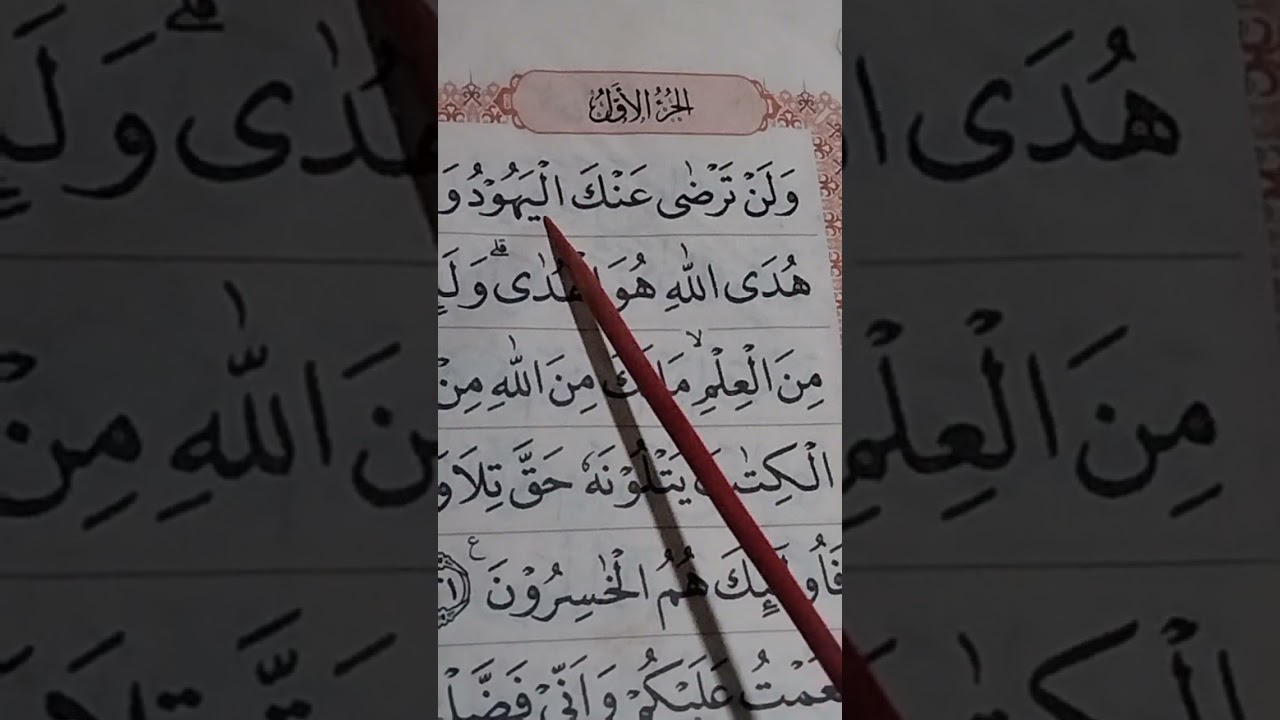 الجزء الاول
وَلَنْ تَرْضٰى عَنْكَ الْيَهُوْدُ وَ
هُدَى اللّٰهِ هُوَ الْهُدٰىۗ وَلَىِٕ
مِنَ الْعِلْمِۙ مَا لَكَ مِنَ اللّٰهِ مِنْ
الْكِتٰبَ يَتْلُوْنَهٗ حَقَّ تِلَاوَ
فَاُولٰۤىِٕكَ هُمُ الْخٰسِرُوْنَ ࣖ
عَلَيْكُمْ وَاَنِّيْ فَضَّلْ